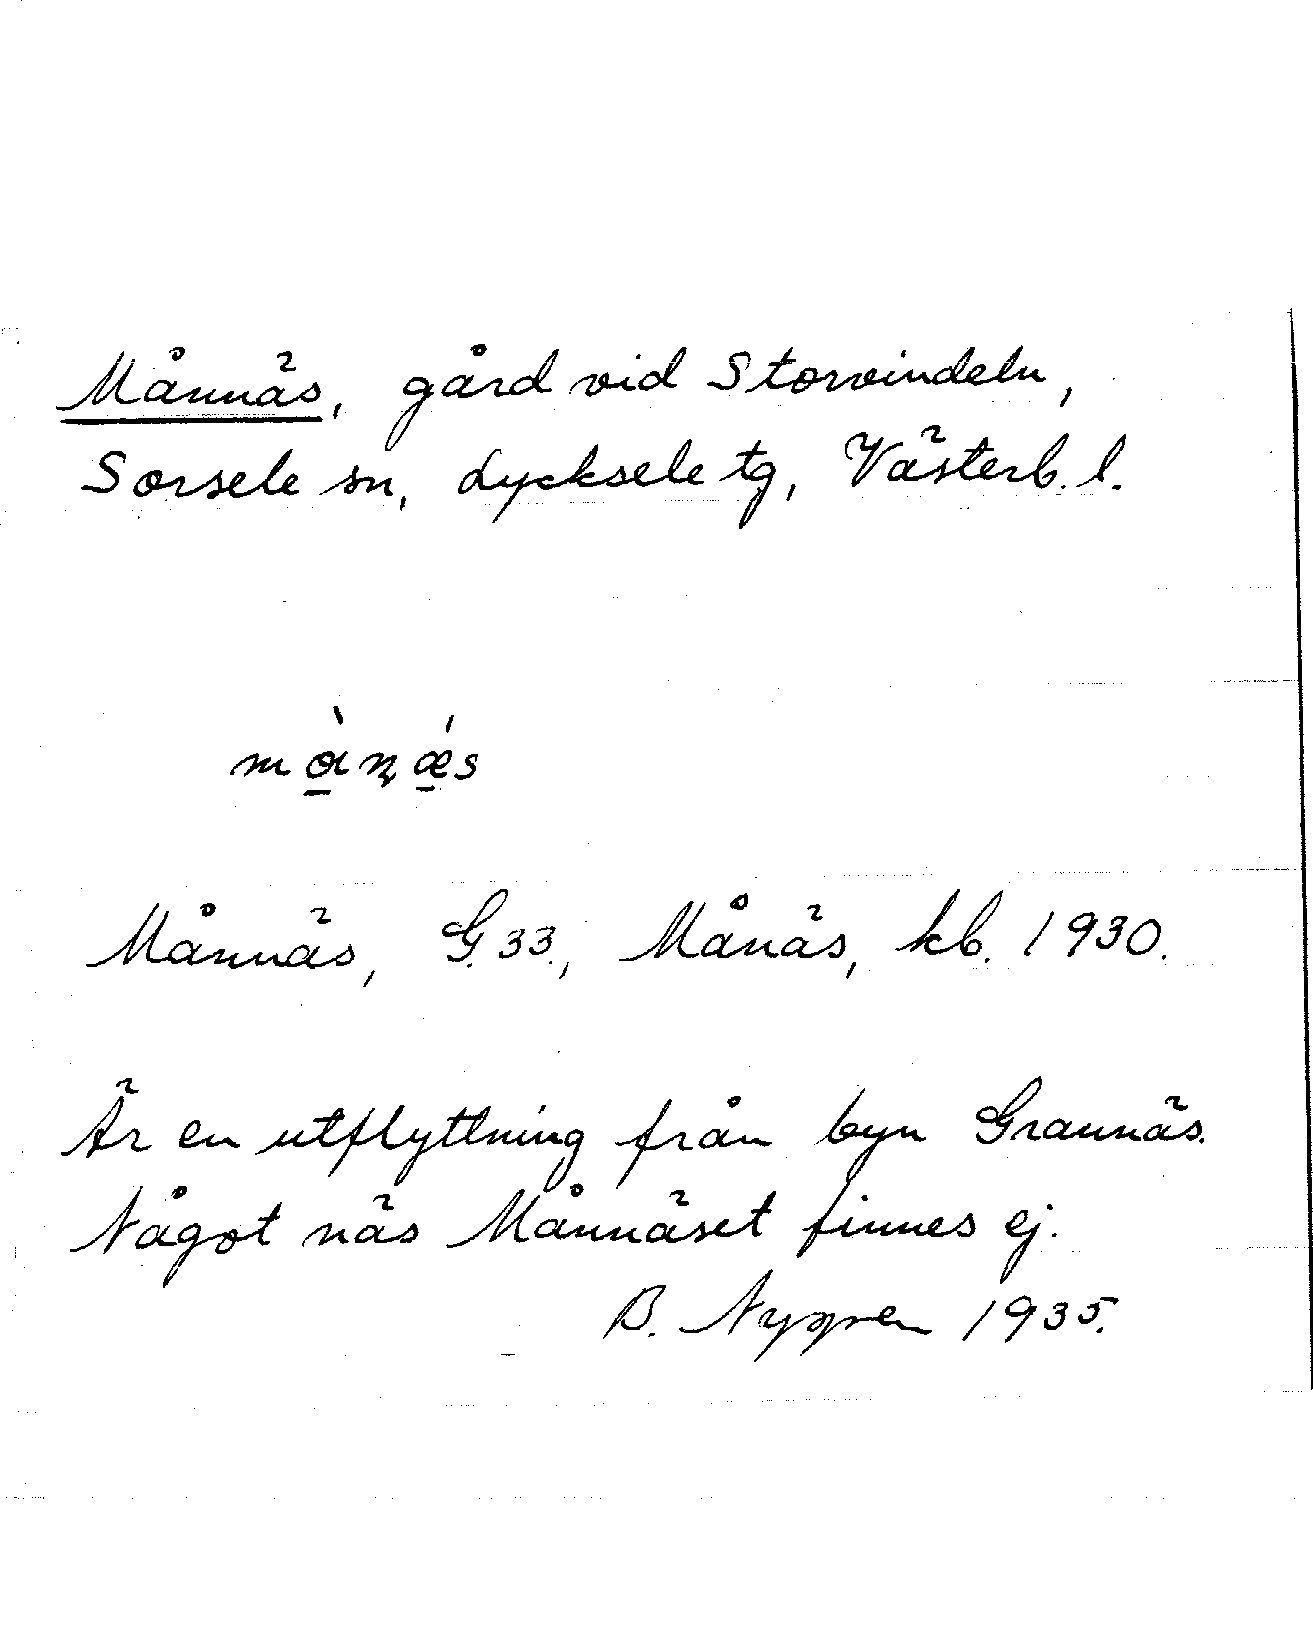 Månnäs, gård vid Storvindeln,
Sorsele sn, Lycksele tg, Västerb. l.
Månnäs, G. 33., Månäs, kb. 1930.
Är en utflyttning från byn Grannäs.
Något näs Månnäset finnes ej.
B. Nygren 1935.